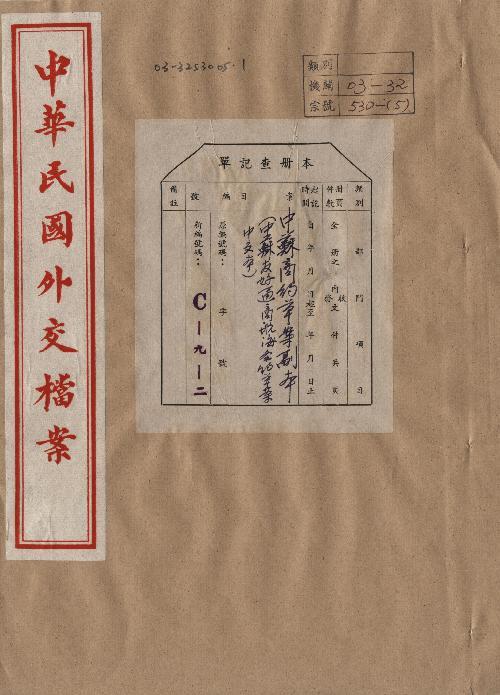 中華民國外交檔案
03-3253005.1
類別
機關 03-32
宗號 530-(5)
本册查記單
類別 部門項目
時間 自 年 月 日起至 年 月 日止
案目
中蘇商約草案副本
(中蘇友好通商航海条約草案
中文本)
編號
原集號碼： 字 號
新編號碼： C—九—二
備註